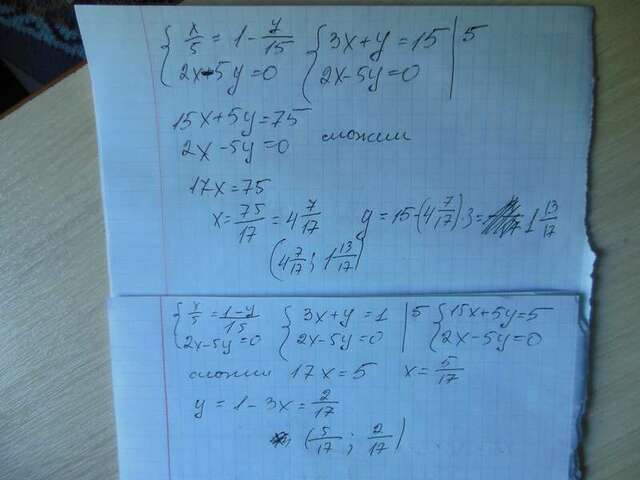 { x/5 = 1 - y/15 { 3x+y=15 | 5
2x-5y=0 2x-5y=0
15x+5y=75
2x-5y=0 сложим
17x=75
x=75/17=4 7/17 y=15-(4 7/17)·3= 1 13/17
(4 7/17; 1 13/17)
{ x/5 = 1-y/15 { 3x+y=1 | 5 { 15x+5y=5
2x-5y=0 2x-5y=0 2x-5y=0
сложим 17x=5 x=5/17
y=1-3x=2/17
(5/17; 2/17)